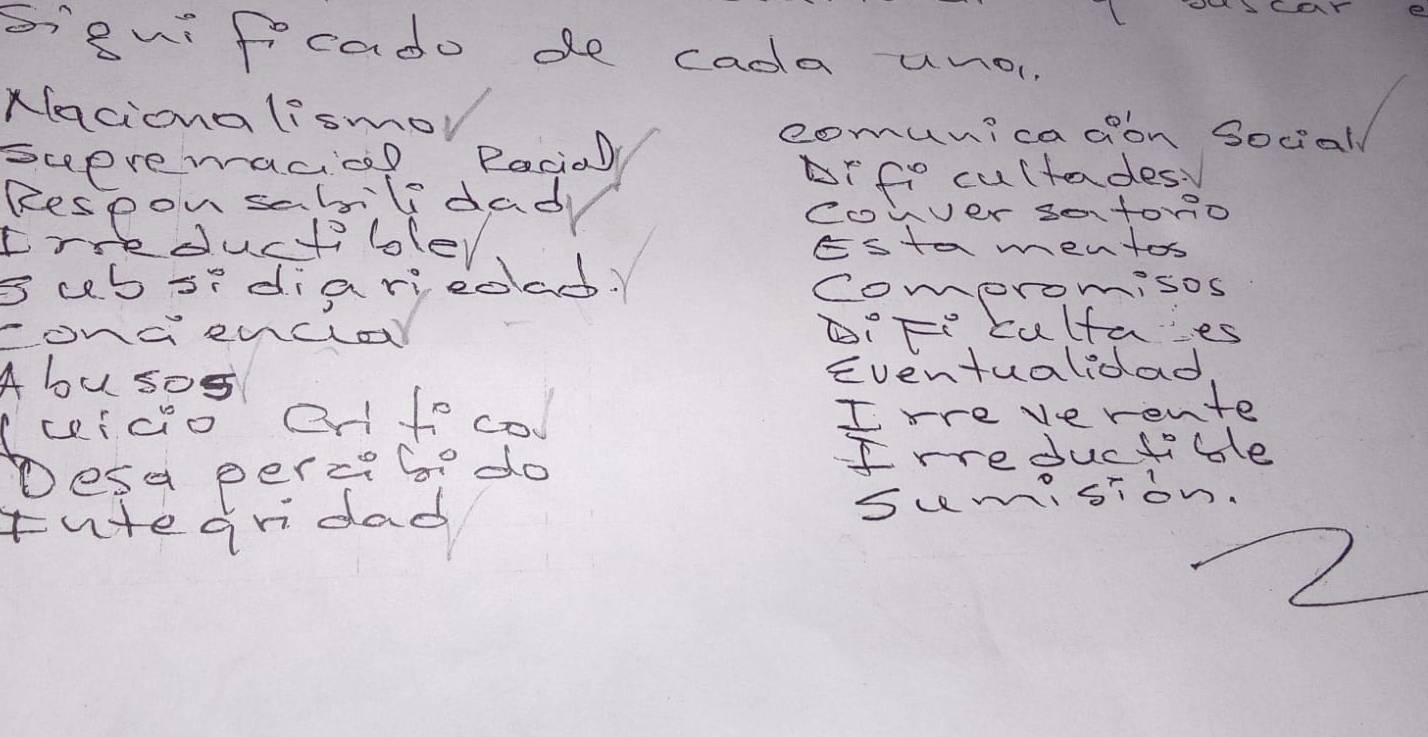 y buscar e
Significado de cada uno.
Nacionalismo
Supremacial Racial
Responsabilidad
Irreductible
Subsidiariedad.
Conciencia
Abusos
Juicio Critico
Desapercibido
Integridad
comunicación Social
Dificultades.
Conversatorio
Estamentos
Compromisos
Dificulta es
Eventualidad,
Irreverente
Irreductible
Sumisión.